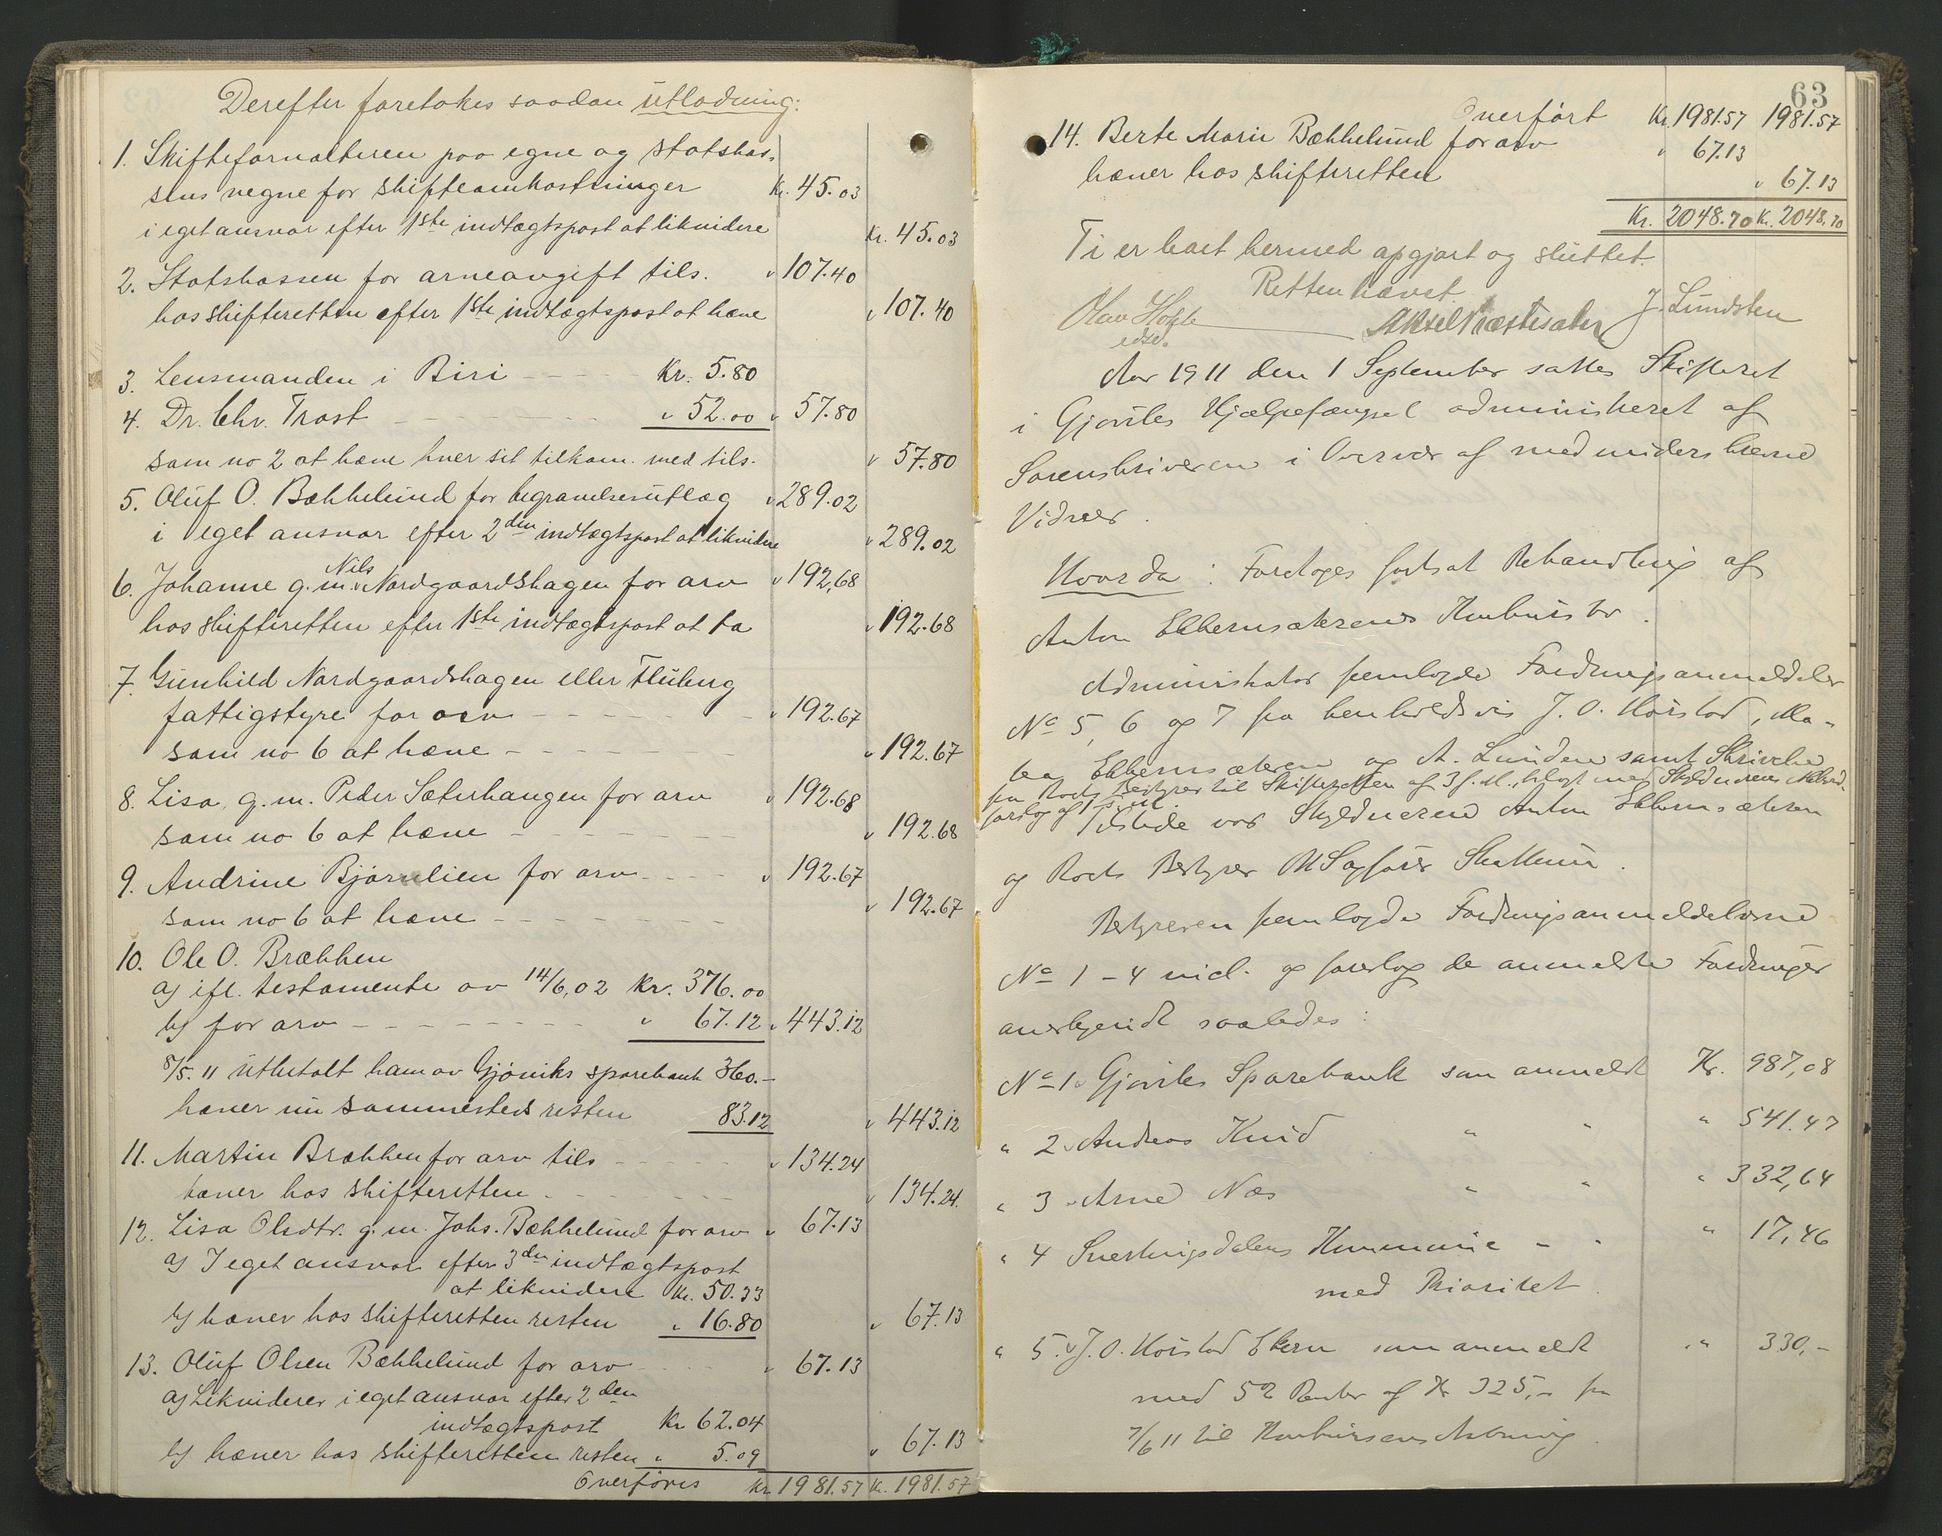 Derefter foretokes saadan utlodning:
1. Skifteforvalteren paa egne og statskas-
sens vegne for skifteomkostninger Kr. 45.03
i eget ansvar efter 1ste indtægtspost at likvidere Kr. 45.03
2. Statskassen for arveavgift tils. " 107.40
hos skifteretten efter 1ste indtægtspost at hæve " 107.40
3. Lensmanden i Biri - - - Kr. 5.80
4. Dr. Chr. Trost - - - " 52.00 " 57.80
som no 2 at hæve hver sit tilkom. med tils. " 57.80
5. Oluf O. Bækkelund for begravelsesutlæg " 289.02
i eget ansvar efter 2den indtægtspost at likvidere " 289.02
6. Johanne g. m. Nils Nordgaardshagen for arv " 192.68
hos skifteretten efter 1ste indtægtspost at ta " 192.68
7. Gunhild Nordgaardshagen eller Fluberg
fattigstyre for arv - - - " 192.67
som no 6 at hæve - - - " 192.67
8. Lisa, g. m. Peder Sæterhaugen for arv " 192.68
som no 6 at hæve - - - " 192.68
9. Andrine Bjørnlien for arv - - - " 192.67
som no 6 at hæve - - - " 192.67
10. Ole O. Brækken
a) ifl. testamente av 14/6.02 Kr. 376.00
b) for arv - - - " 67.12 " 443.12
8/5.11 utbetalt ham av Gjøviks sparebank 360.-
hæver nu sammesteds resten 83.12 " 443.12
11. Martin Brækken for arv tils - - - " 134.24
hæver hos skifteretten - - - " 134.24.
12. Lisa Olsdtr. g. m. Johs. Bækkelund for arv " 67.13
a) I eget ansvar efter 3den indtægtspost
at likvidere Kr. 50.33
b) hæver hos skifteretten resten " 16.80 " 67.13
13. Oluf Olsen Bækkelund for arv - - - " 67.13
a) Likviderer i eget ansvar efter 2den
indtægtspost Kr 62.04
b) hæver hos skifteretten resten " 5.09 " 67.13
Overføres Kr 1981.57 K. 1981.57
63
Overført Kr. 1981.57 1981.57
14. Berte Marie Bækkelund for arv " 67.13
hæver hos skifteretten " 67.13
Kr. 2048.70 K. 2048.70
Ti er boet hermed opgjort og sluttet.
Retten hævet.
Olav Hoffe
edsv. Aksel Præstesæter J. Lundsten
Aar 1911 den 1 September sattes Skifteret
i Gjøviks Hjælpefængsel administreret af
Sorenskriveren i Overvær af medunderskrevne
Vidner.
Hvorda: Foretoges fortsat Behandling af
Anton Ekkernsæterens Konkursbo.
Administrator fremlagde Fordringsanmeldelser
No 5, 6 og 7 fra henholdsvis J. O. Hørstad, Ma-
Ekkernsæteren og A. Lunden samt Skrivelse
fra Boets Bestyrer til Skifteretten af 3 f. M., bilagt med Skyldnerens
forslag af 1
Tilstede var Skyldneren Anton Ekkernsæteren
og Boets Bestyrer Sagfører Skattum.
Bestyreren fremlagde Fordringsanmeldelserne
No 1 - 4 incl. og foreslog de anmeldte Fordringer
anerkjendt saaledes:
No 1. Gjøviks Sparebank som anmeldt Kr. 987,08
" 2. Andreas Hnid " " " 541.47
" 3. Arne Næs " " " 332,64
" 4 Snertingdalens Kommune - - " 17,46
med Prioritet.
" 5. J. O. Hørstad Ekern som anmeldt " 330,-
med 5% Renter af Kr 325,- fra
7/6 11 til Konkursens Aabning.